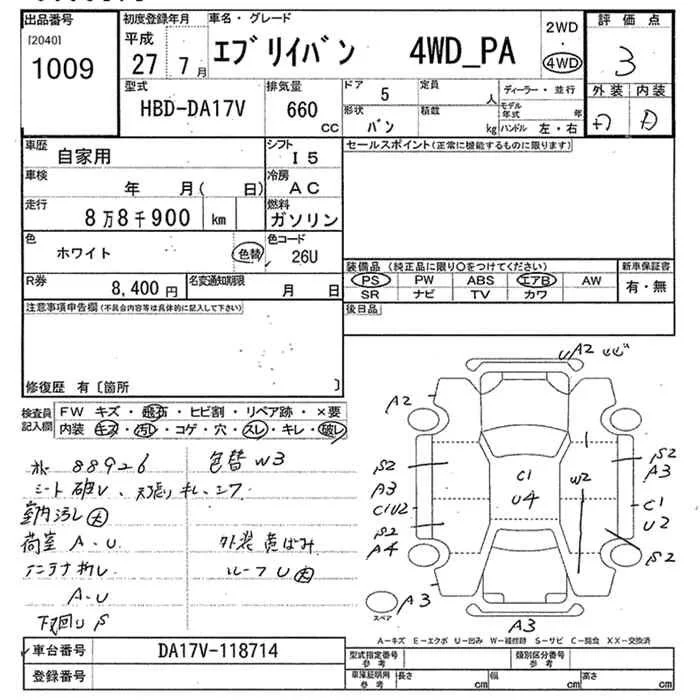 出品番号 初度登録年月 車名・グレード 2WD 評価点
[2040] 平成 ・
1009 27 年 7月 エブリイバン 4WD_PA 4WD 3
型式 排気量 ドア 5 定員 人 ディーラー・並行 外装 内装
HBD-DA17V 660 cc 形状 バン 積載 kg モデル年式 年 D
ハンドル 左・右
車歴 自家用 シフト I5 セールスポイント(正常に機能するものに限ります)
車検 年 月( 日) 冷房 AC
走行 8万8千900 km 燃料 ガソリン
色 ホワイト 色替 色コード 26U
装備品 (純正品に限り○をつけてください) 新車保証書
R券 8,400円 名変通知期限 月 日 PS PW ABS エアB AW 有・無
SR ナビ TV カワ
注意事項申告欄(不具合内容等は具体的に記入して下さい) 後日品
修復歴 有〔箇所 〕
検査員記入欄 FW キズ・飛石・ヒビ割・リペア跡・×要
内装 キズ・汚レ・コゲ・穴・スレ・キレ・破レ
88926 色替 W3
シート破レ、天張りキレ、
室内汚レ大
荷室 A-U 外装黄ばみ
アンテナ折レ ルーフU大
A-U
下回りS
A2
A2
S2 S2
A3 A3
C1U2 C1 U4 W2 C1
U2
S2 S2
A4
スペア A3 A3
A-キズ E-エクボ U-凹み W-補修跡 S-サビ C-腐食 XX-交換済
車台番号 DA17V-118714 型式指定番号 参考 類別区分番号 参考
登録番号 車庫証明用 参考 長さ cm 幅 cm 高さ cm